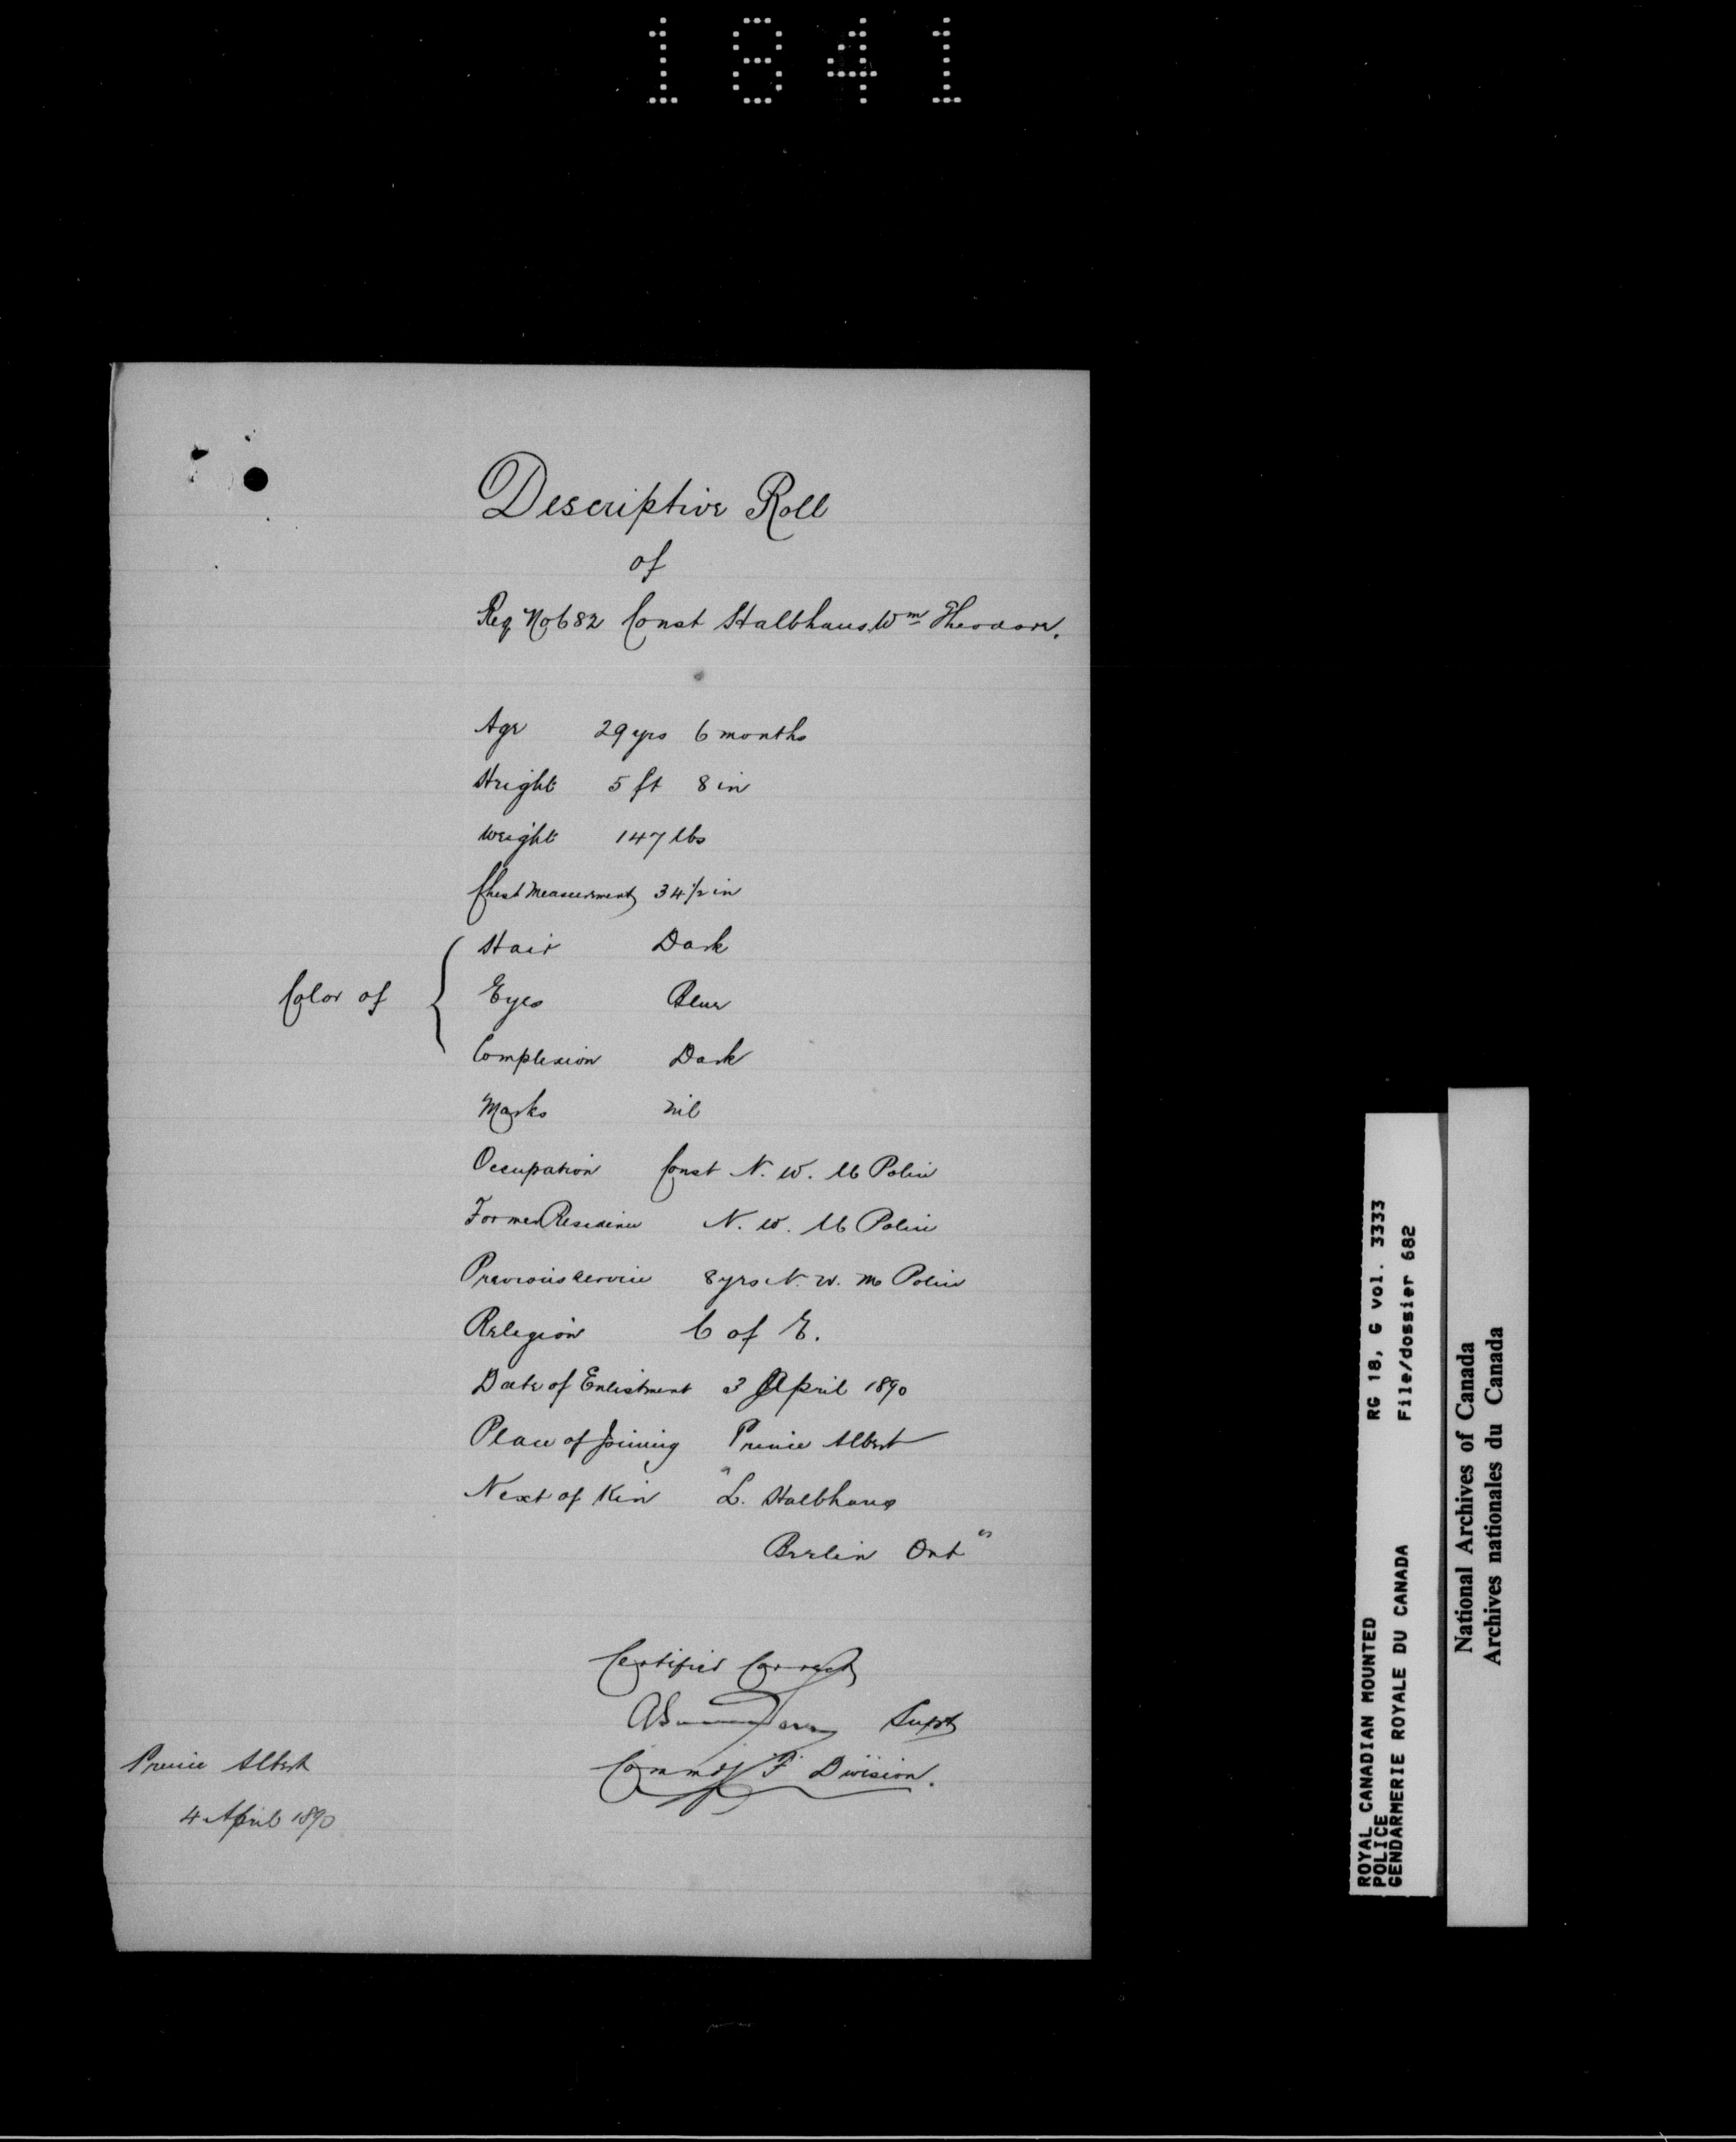 1841
Descriptive Roll
of
Reg No 682 Const Halbhaus Wm Theodore.
Age 29 yrs 6 months
Height 5 ft 8 in
Weight 147 lbs
Chest Measurement 34 1/2 in
Color of { Hair Dark
Eyes Blue
Complexion Dark
Marks nil
Occupation Const N. W. M Police
Former Residence N. W. M Police
Previous Service 8 yrs N. W. M Police
Religion C of E.
Date of Enlistment 3 April 1890
Place of Joining Prince Albert
Next of Kin "L. Halbhaus
Berlin Ont"
Certified Correct
Supt
Commdg "F" Division.
Prince Albert
4 April 1890
ROYAL CANADIAN MOUNTED
POLICE
GENDARMERIE ROYALE DU CANADA
RG 18, G vol. 3333
File/dossier 682
National Archives of Canada
Archives nationales du Canada